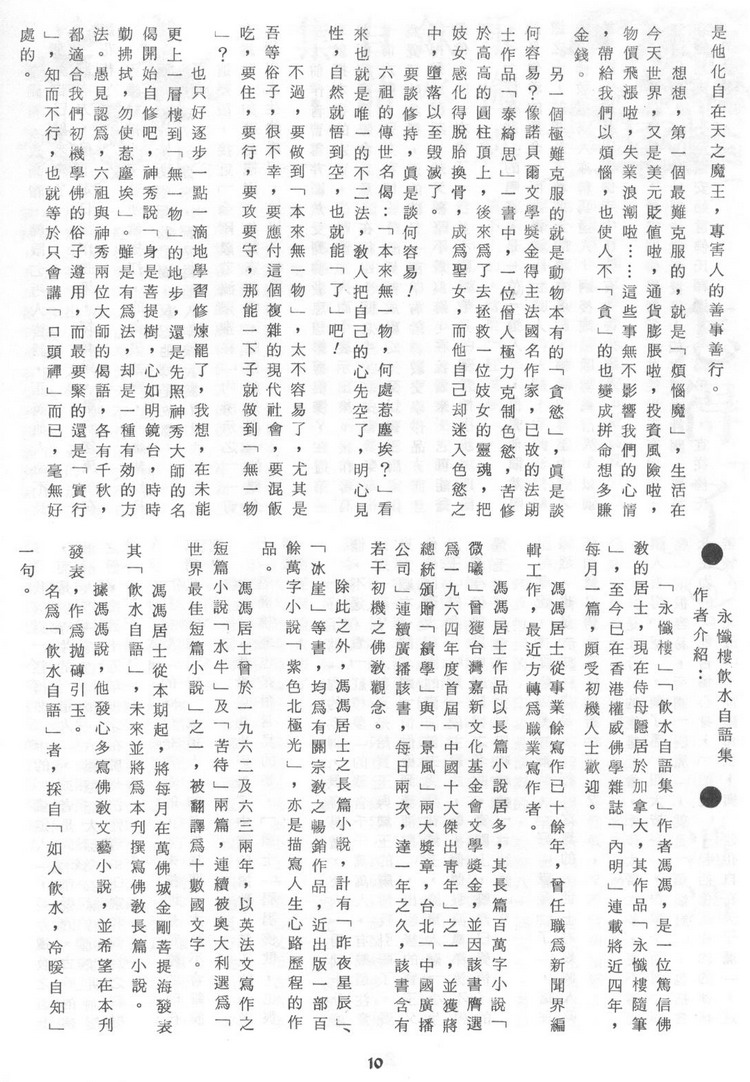 是他化自在天之魔王，專害人的善事善行。
想想，第一個最難克服的，就是「煩惱魔」，生活在
今天世界，又是美元貶值啦，通貨膨脹啦，投資風險啦，
物價飛漲啦，失業浪潮啦……這些事無不影響我們的心情
，帶給我們以煩惱，也使人不「貪」的也變成拼命想多賺
金錢。
另一個極難克服的就是動物本有的「貪慾」，真是談
何容易？像諾貝爾文學獎金得主法國名作家，已故的法朗
士作品「泰綺思」一書中，一位僧人極力克制色慾，苦修
於高高的圓柱頂上，後來爲了去拯救一位妓女的靈魂，把
妓女感化得脫胎換骨，成爲聖女，而他自己却迷入色慾之
中，墮落以至毀滅了。
要談修持，真是談何容易！
六祖的傳世名偈：「本來無一物，何處惹塵埃？」看
來也就是唯一的不二法，教人把自己的心先空了，明心見
性，自然就悟到空，也就能「了」吧！
不過，要做到「本來無一物」，太不容易了，尤其是
吾等俗子，很不幸，要應付這個複雜的現代社會，要混飯
吃，要住，要行，要攻要守，那能一下子就做到「無一物
」？
也只好逐步一點一滴地學習修煉罷了，我想，在未能
更上一層樓到「無一物」的地步，還是先照神秀大師的名
偈開始自修吧，神秀說「身是菩提樹，心如明鏡台，時時
勤拂拭，勿使惹塵埃」。雖是有爲法，却是一種有効的方
法。愚見認爲，六祖與神秀兩位大師的偈語，各有千秋，
都適合我們初機學佛的俗子遵用，而最要緊的還是「實行
」，知而不行，也就等於只會講「口頭禪」而已，毫無好
處的。
●永懺樓飲水自語集●
作者介紹：
「永懺樓」「飲水自語集」作者馮馮，是一位篤信佛
敎的居士，現在侍母隱居於加拿大，其作品「永懺樓隨筆
」，至今已在香港權威佛學雜誌「內明」連載將近四年，
每月一篇，頗受初機人士歡迎。
馮馮居士從事業餘寫作已十餘年，曾任職爲新聞界編
輯工作，最近方轉爲職業寫作者。
馮馮居士作品以長篇小說居多，其長篇百萬字小說「
微曦」曾獲台灣嘉新文化基金會文學獎金，並因該書膺選
爲一九六四年度首届「中國十大傑出青年」之一，並獲蔣
總統頒贈「績學」與「景風」兩大獎章，台北「中國廣播
公司」連續廣播該書，每日兩次，達一年之久，該書含有
若干初機之佛敎觀念。
除此之外，馮馮居士之長篇小說，計有「昨夜星辰」、
「冰崖」等書，均爲有關宗敎之暢銷作品，近出版一部百
餘萬字小說「紫色北極光」，亦是描寫人生心路歷程的作
品。
馮馮居士曾於一九六二及六三兩年，以英法文寫作之
短篇小說「水牛」及「苦待」兩篇，連續被奧大利選爲「
世界最佳短篇小說」之一，被翻譯爲十數國文字。
馮馮居士從本期起，將每月在萬佛城金剛菩提海發表
其「飲水自語」，未來並將爲本刋撰寫佛敎長篇小說。
據馮馮說，他發心多寫佛敎文藝小說，並希望在本刋
發表，作爲拋磚引玉。
名爲「飲水自語」者，採自「如人飲水，冷暖自知」
一句。
10